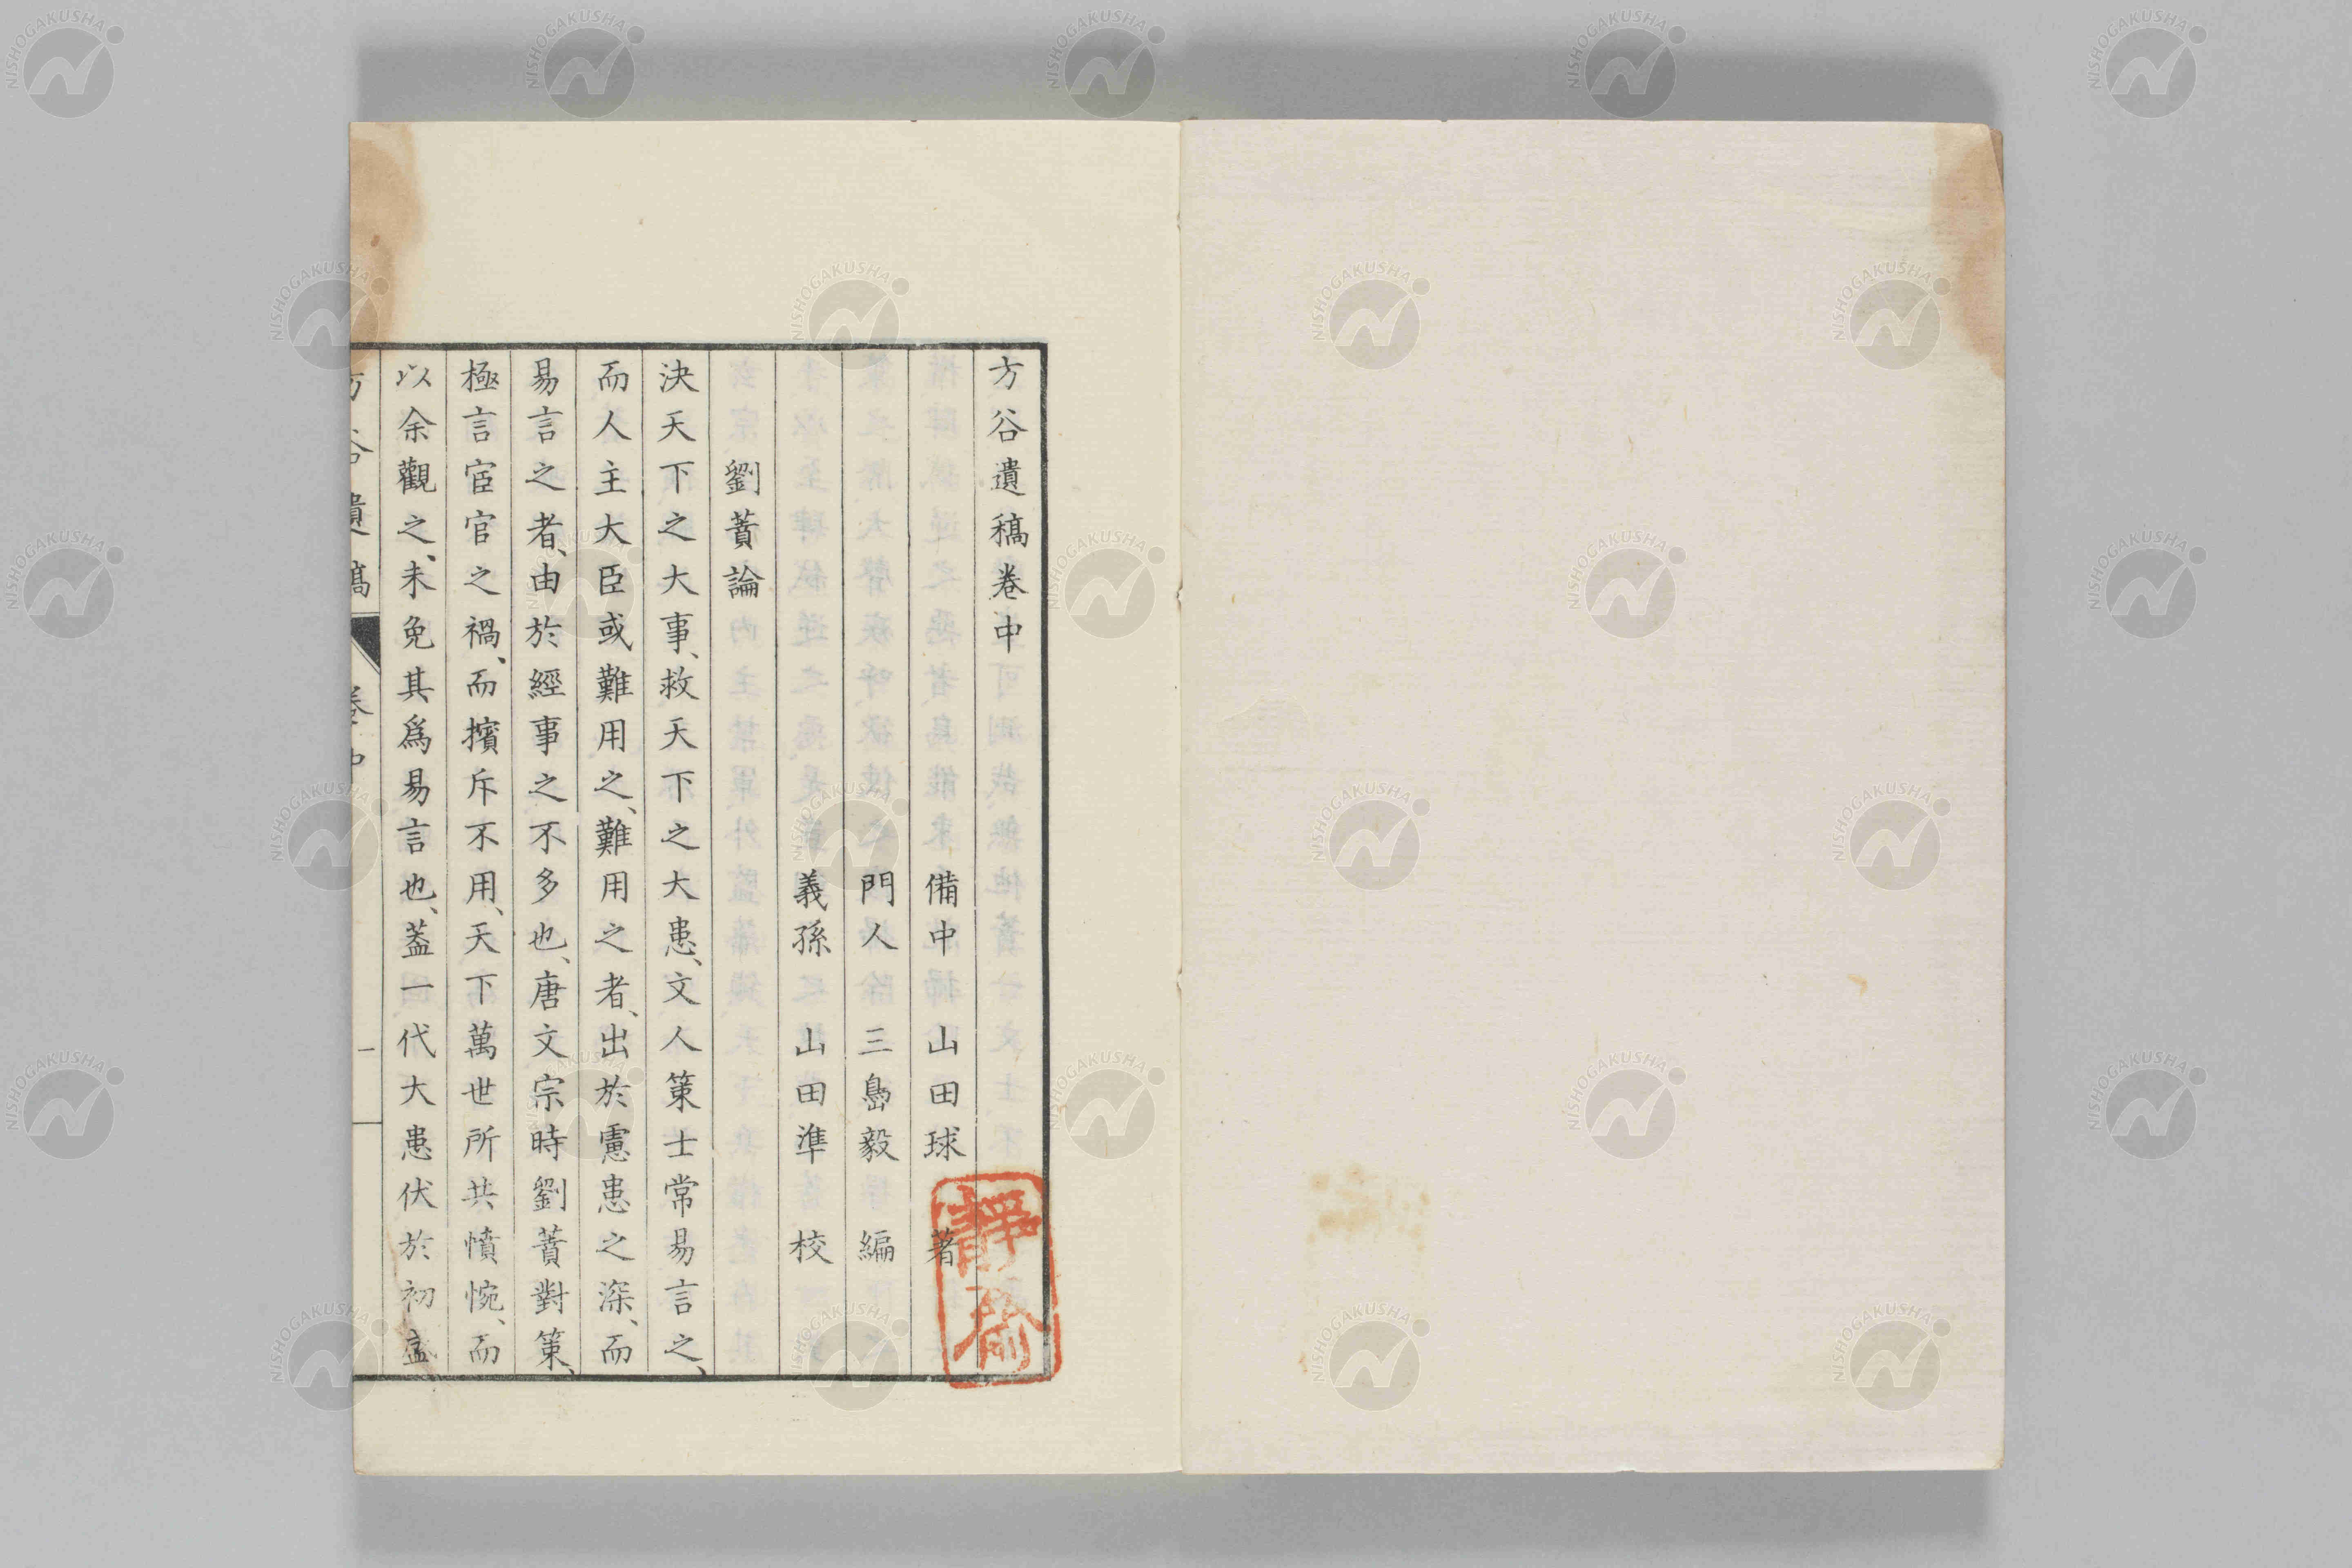 方谷遺稿卷中
備中 山田球 著
門人 三島毅 編
義孫 山田準 校
劉蕡論
決天下之大事、救天下之大患、文人策士常易言之、
而人主大臣或難用之、難用之者、出於慮患之深、而
易言之者、由於經事之不多也、唐文宗時劉蕡對策、
極言宦官之禍、而擯斥不用、天下萬世所共憤惋、而
以余觀之、未免其爲易言也、蓋一代大患伏於初盛
方谷遺稿 卷中 一
靜齋
NISHOGAKUSHA